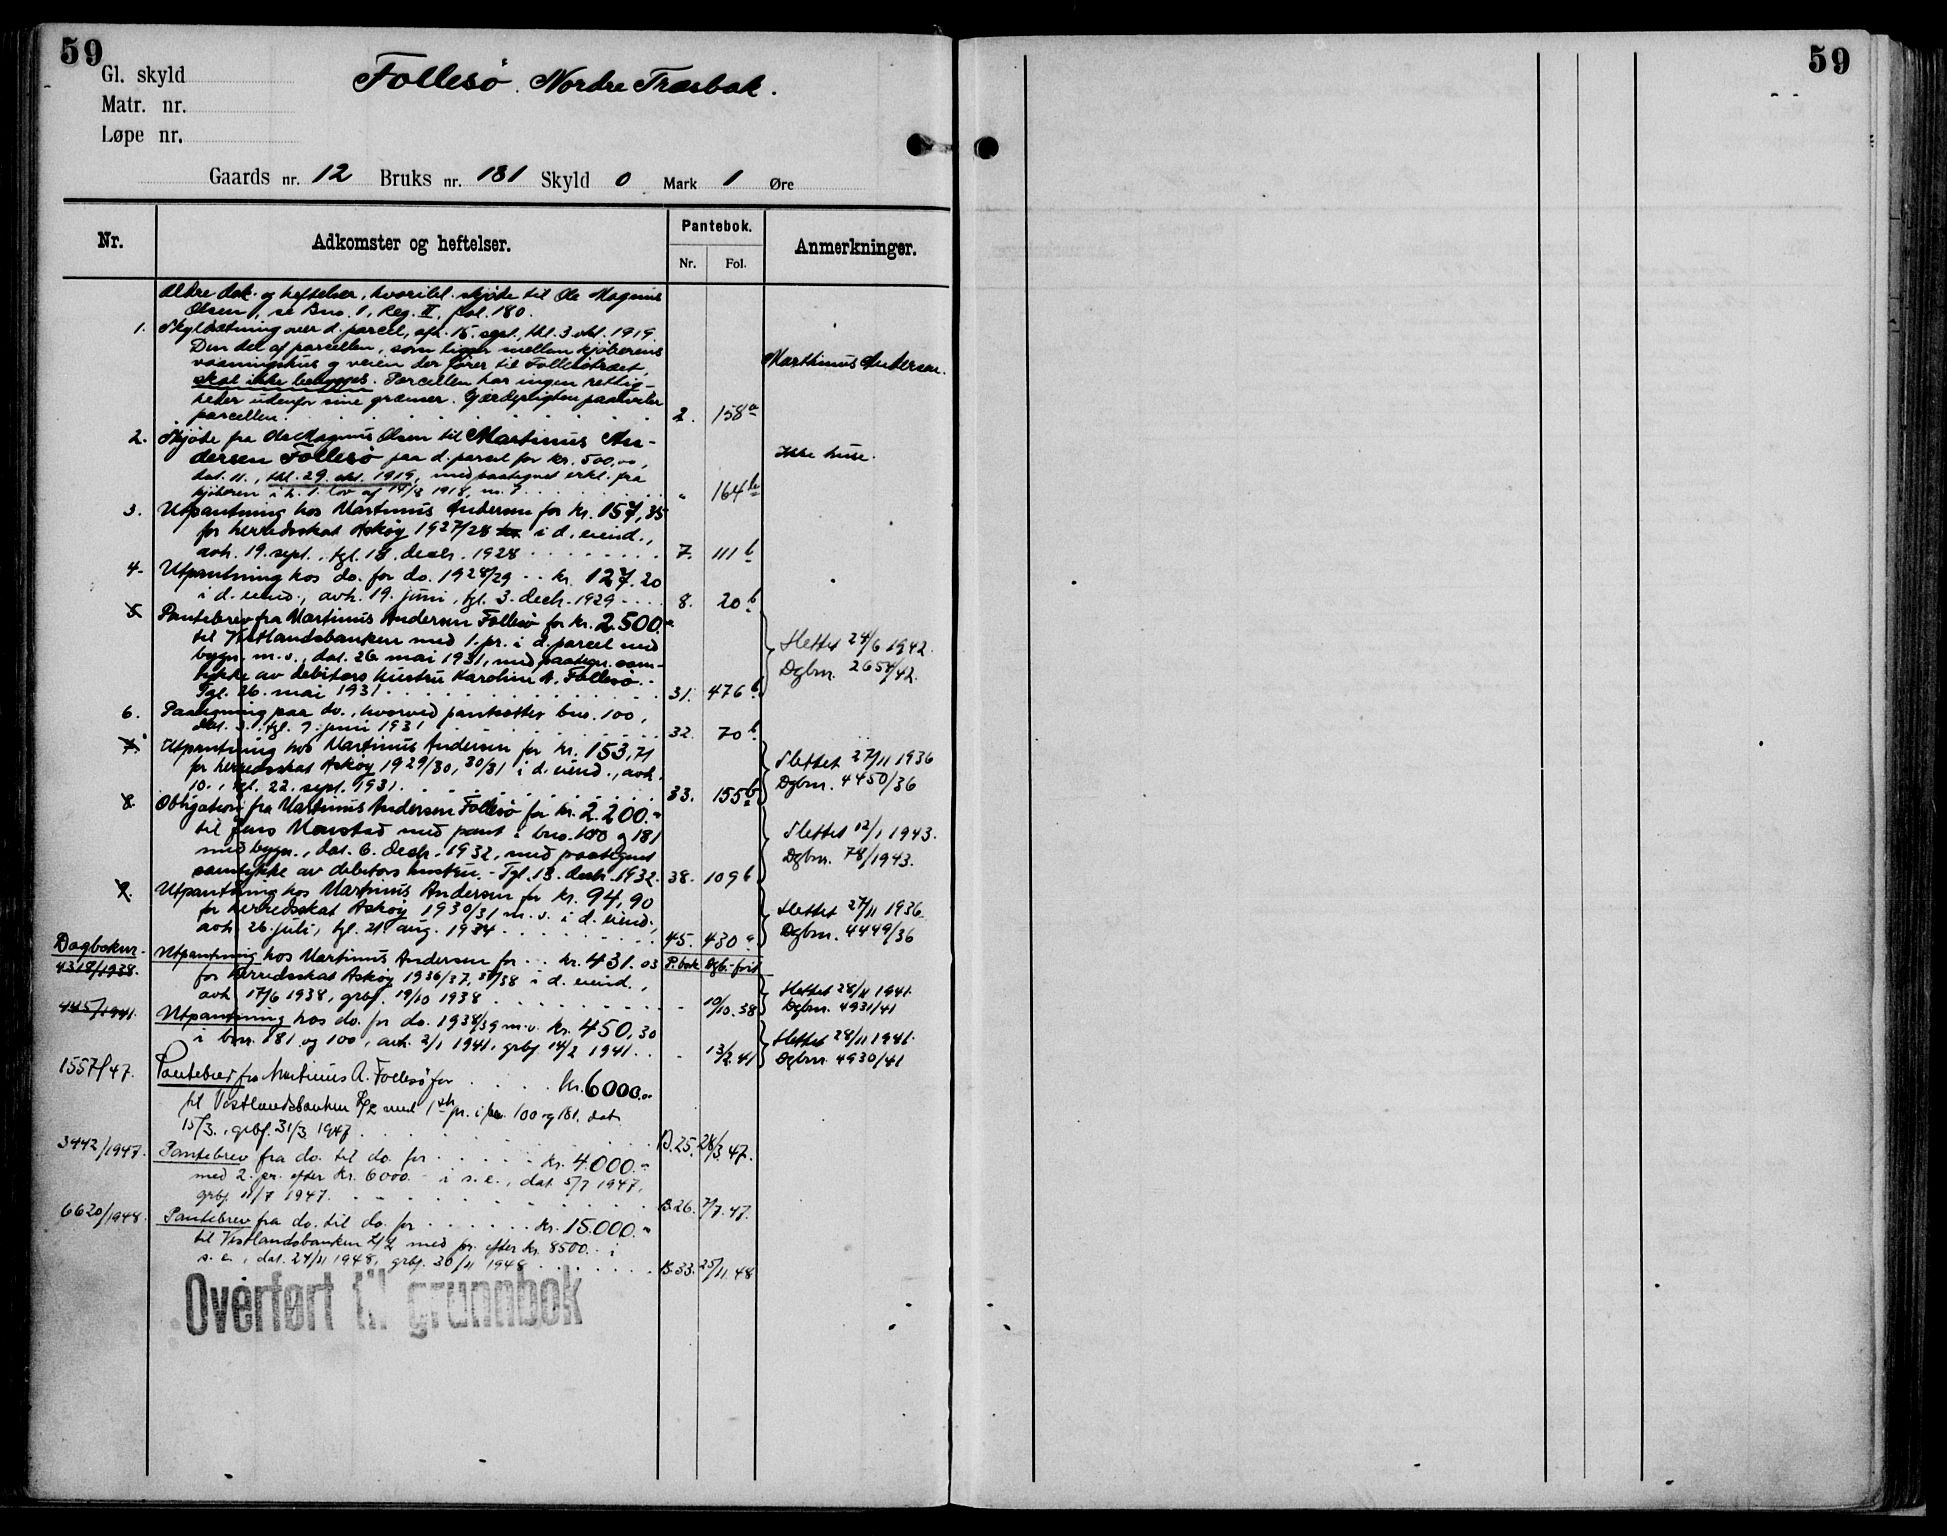 59
59
Gl. skyld
Follesø. Nordre Træsbak.
Matr. nr.
Løpe nr.
Gaards nr. 12 Bruks nr. 181 Skyld 0 Mark 1 Øre
Nr.
Adkomster og heftelser.
Pantebok.
Nr. Fol.
Anmerkninger.
Ældre dok. og heftelser, hvoribl. skjøte til Ole Magnus
Olsen, se Bno. 1, Reg. II, fol. 180.
1. Skyldsætning over d. parcel, afh. 15. sept., thl. 3. okt. 1919.
Den del af parcellen, som ligger mellem kjøberens
vaaningshus og veien der fører til Follesøtræet, Marthinus Andersen.
skal ikke bebygges. Parcellen har ingen rettig-
heder udenfor sine grænser. Gjærdepligten paahviler
parcellen. 2. 158 a
2. Skjøte fra Ole Magnus Olsen til Martinus An-
dersen Follesø paa d. parcel for kr. 500,00, Ikke huse.
dat. 11., thl. 29. okt. 1919, med paategnet erkl. fra
kjøberen i h. t. lov af 14/8 1918, nr. 7 " 164 b
3. Utpantning hos Martinus Andersen for kr. 157,35
for herredsskat Askøy 1927/28 i d. eiend.,
avh. 19. sept., tgl. 18. decbr. 1928 7. 111 b
4. Utpantning hos do. for do. 1928/29 kr. 127.20
i d. eiend., avh. 19. juni, tgl. 3. decb. 1929 8. 20 b
5. Pantebrev fra Martinus Andersen Follesø for kr. 2.500.-
til Vestlandsbanken med 1. pr. i d. parcel med Slettet 24/6 1942.
bygn. m.v., dat. 26. mai 1931, med paategn. sam- Dgbnr. 2654/42.
tykke av debitors hustru Karoline A. Follesø.
Tgl. 26. mai 1931 31. 476 b
6. Paategning paa do., hvorved pantsættes bno. 100,
dat. 3., tgl. 9. juni 1931 32. 70 b
7. Utpantning hos Martinus Andersen for kr. 153,71 Slettet 27/11 1936
for herredsskat Askøy 1929/30, 30/31 i d. eiend., avh. Dgbnr. 4450/36
10., tgl. 22. sept. 1931. 33. 155 b
8. Obligation fra Martinus Andersen Follesø for kr. 2.200.-
til Jens Monstad med pant i bno. 100 og 181 Slettet 12/1 1943.
med bygn., dat. 6. decbr. 1932, med paategnet Dgbnr. 78/1943.
samtykke av debitors hustru. - Tgl. 13. decbr. 1932. 38. 109 b
9. Utpantning hos Martinus Andersen for kr. 94,90
for herredsskat Askøy 1930/31 m.v. i d. eiend., Slettet 27/11 1936
avh. 26. juli, tgl. 21. aug. 1934 45. 430 a Dgbnr. 4449/36
Dagboknr. Utpantning hos Martinus Andersen for kr. 431.03 P.bok Dgb.-ført
4318/1938. for herredsskat Askøy 1936/37, 37/38 i d. eiend., Slettet 28/11 1941.
avh. 17/6 1938, grbf. 19/10 1938 - 10/10.38 Dgbnr. 4931/41
445/1941. Utpantning hos do. for do. 1938/39 m.v. kr. 450,30 Slettet 28/11 1941.
i bnr. 181 og 100, avh. 2/1 1941, grbf 14/2 1941. - 13/2.41 Dgbnr. 4930/41
1557/47. Pantebrev fra Martinus A. Follesø for kr. 6000.00
til Vestlandsbanken L/L med 1ste pr. i bnr. 100 og 181, dat.
15/3., grbf. 31/3 1947 B.25. 28/3.47.
3442/1947. Pantebrev fra do. til do. for kr. 4.000.-
med 2. pr. efter kr. 6000.- i s. e., dat. 5/7 1947,
grbf. 11/7 1947. B.26. 7/7.47.
6620/1948. Pantebrev fra do. til do. for kr. 15.000.-
til Vestlandsbanken L/L med pr. efter kr. 8500.- i
s. e., dat. 24/11 1948, grbf. 30/11 1948 B.33. 25/11.48
Overført til grunnbok